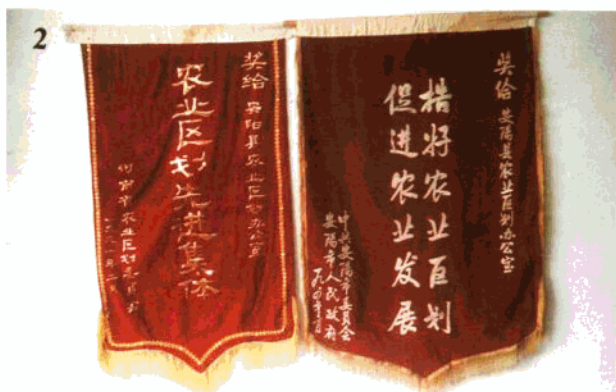 2
奖给 安阳县农业区划办公室
农业区划先进集体
河南省农业区划委员会
奖给 安陽县农业区划办公室
搞好农业区划
促进农业发展
中共安陽市委員会
安陽市人民政府